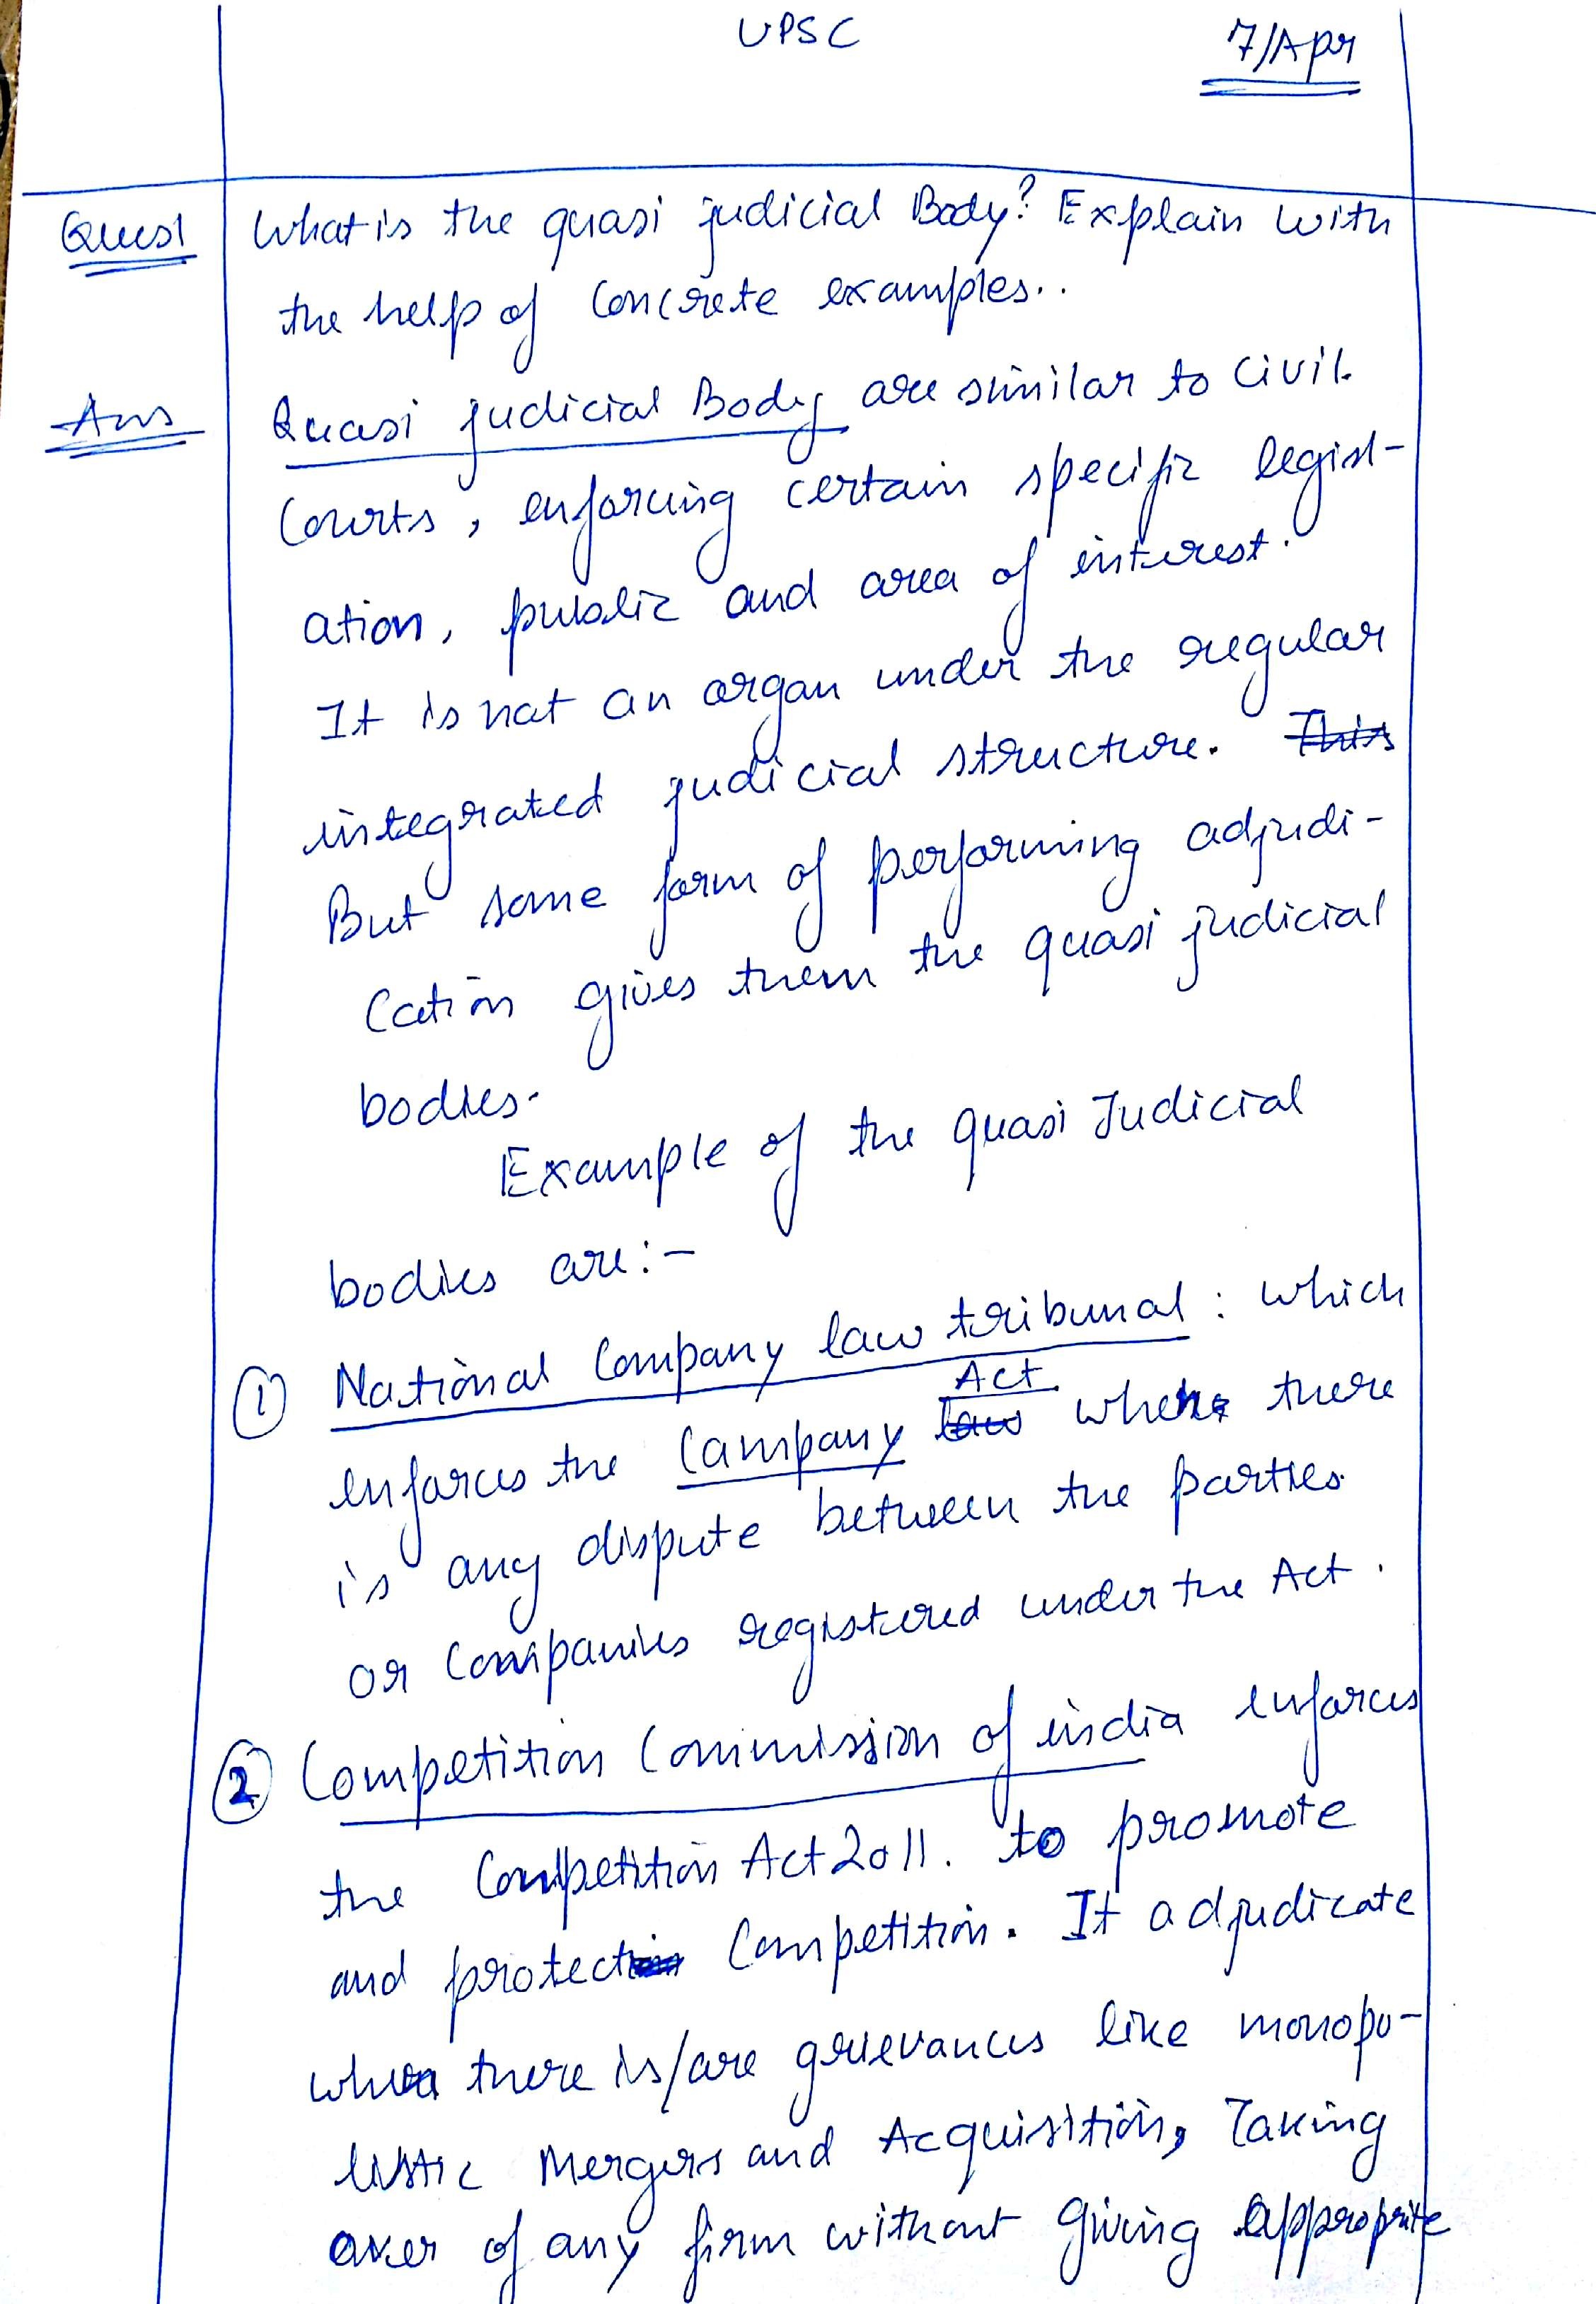 UPSC
7/Apr
Quest What is the quasi judicial Body? Explain with
the help of Concrete examples..
Ans Quasi judicial Body are similar to civil
Courts, enforcing certain specific legisl-
ation, public and area of interest.
It is not an organ under the regular
integrated judicial structure. This
But some form of performing adjudi-
cation gives them the quasi judicial
bodies.
Example of the quasi Judicial
bodies are:-
① National Company law tribunal : which
enforces the Company law Act where there
is any dispute between the parties
or Companies registered under the Act.
② Competition Commission of india enforces
the Competition Act 2011. to promote
and protect Competition. It adjudicate
when there is/are grievances like monopo-
listic Mergers and Acquisition, Taking
over of any firm without giving approprite